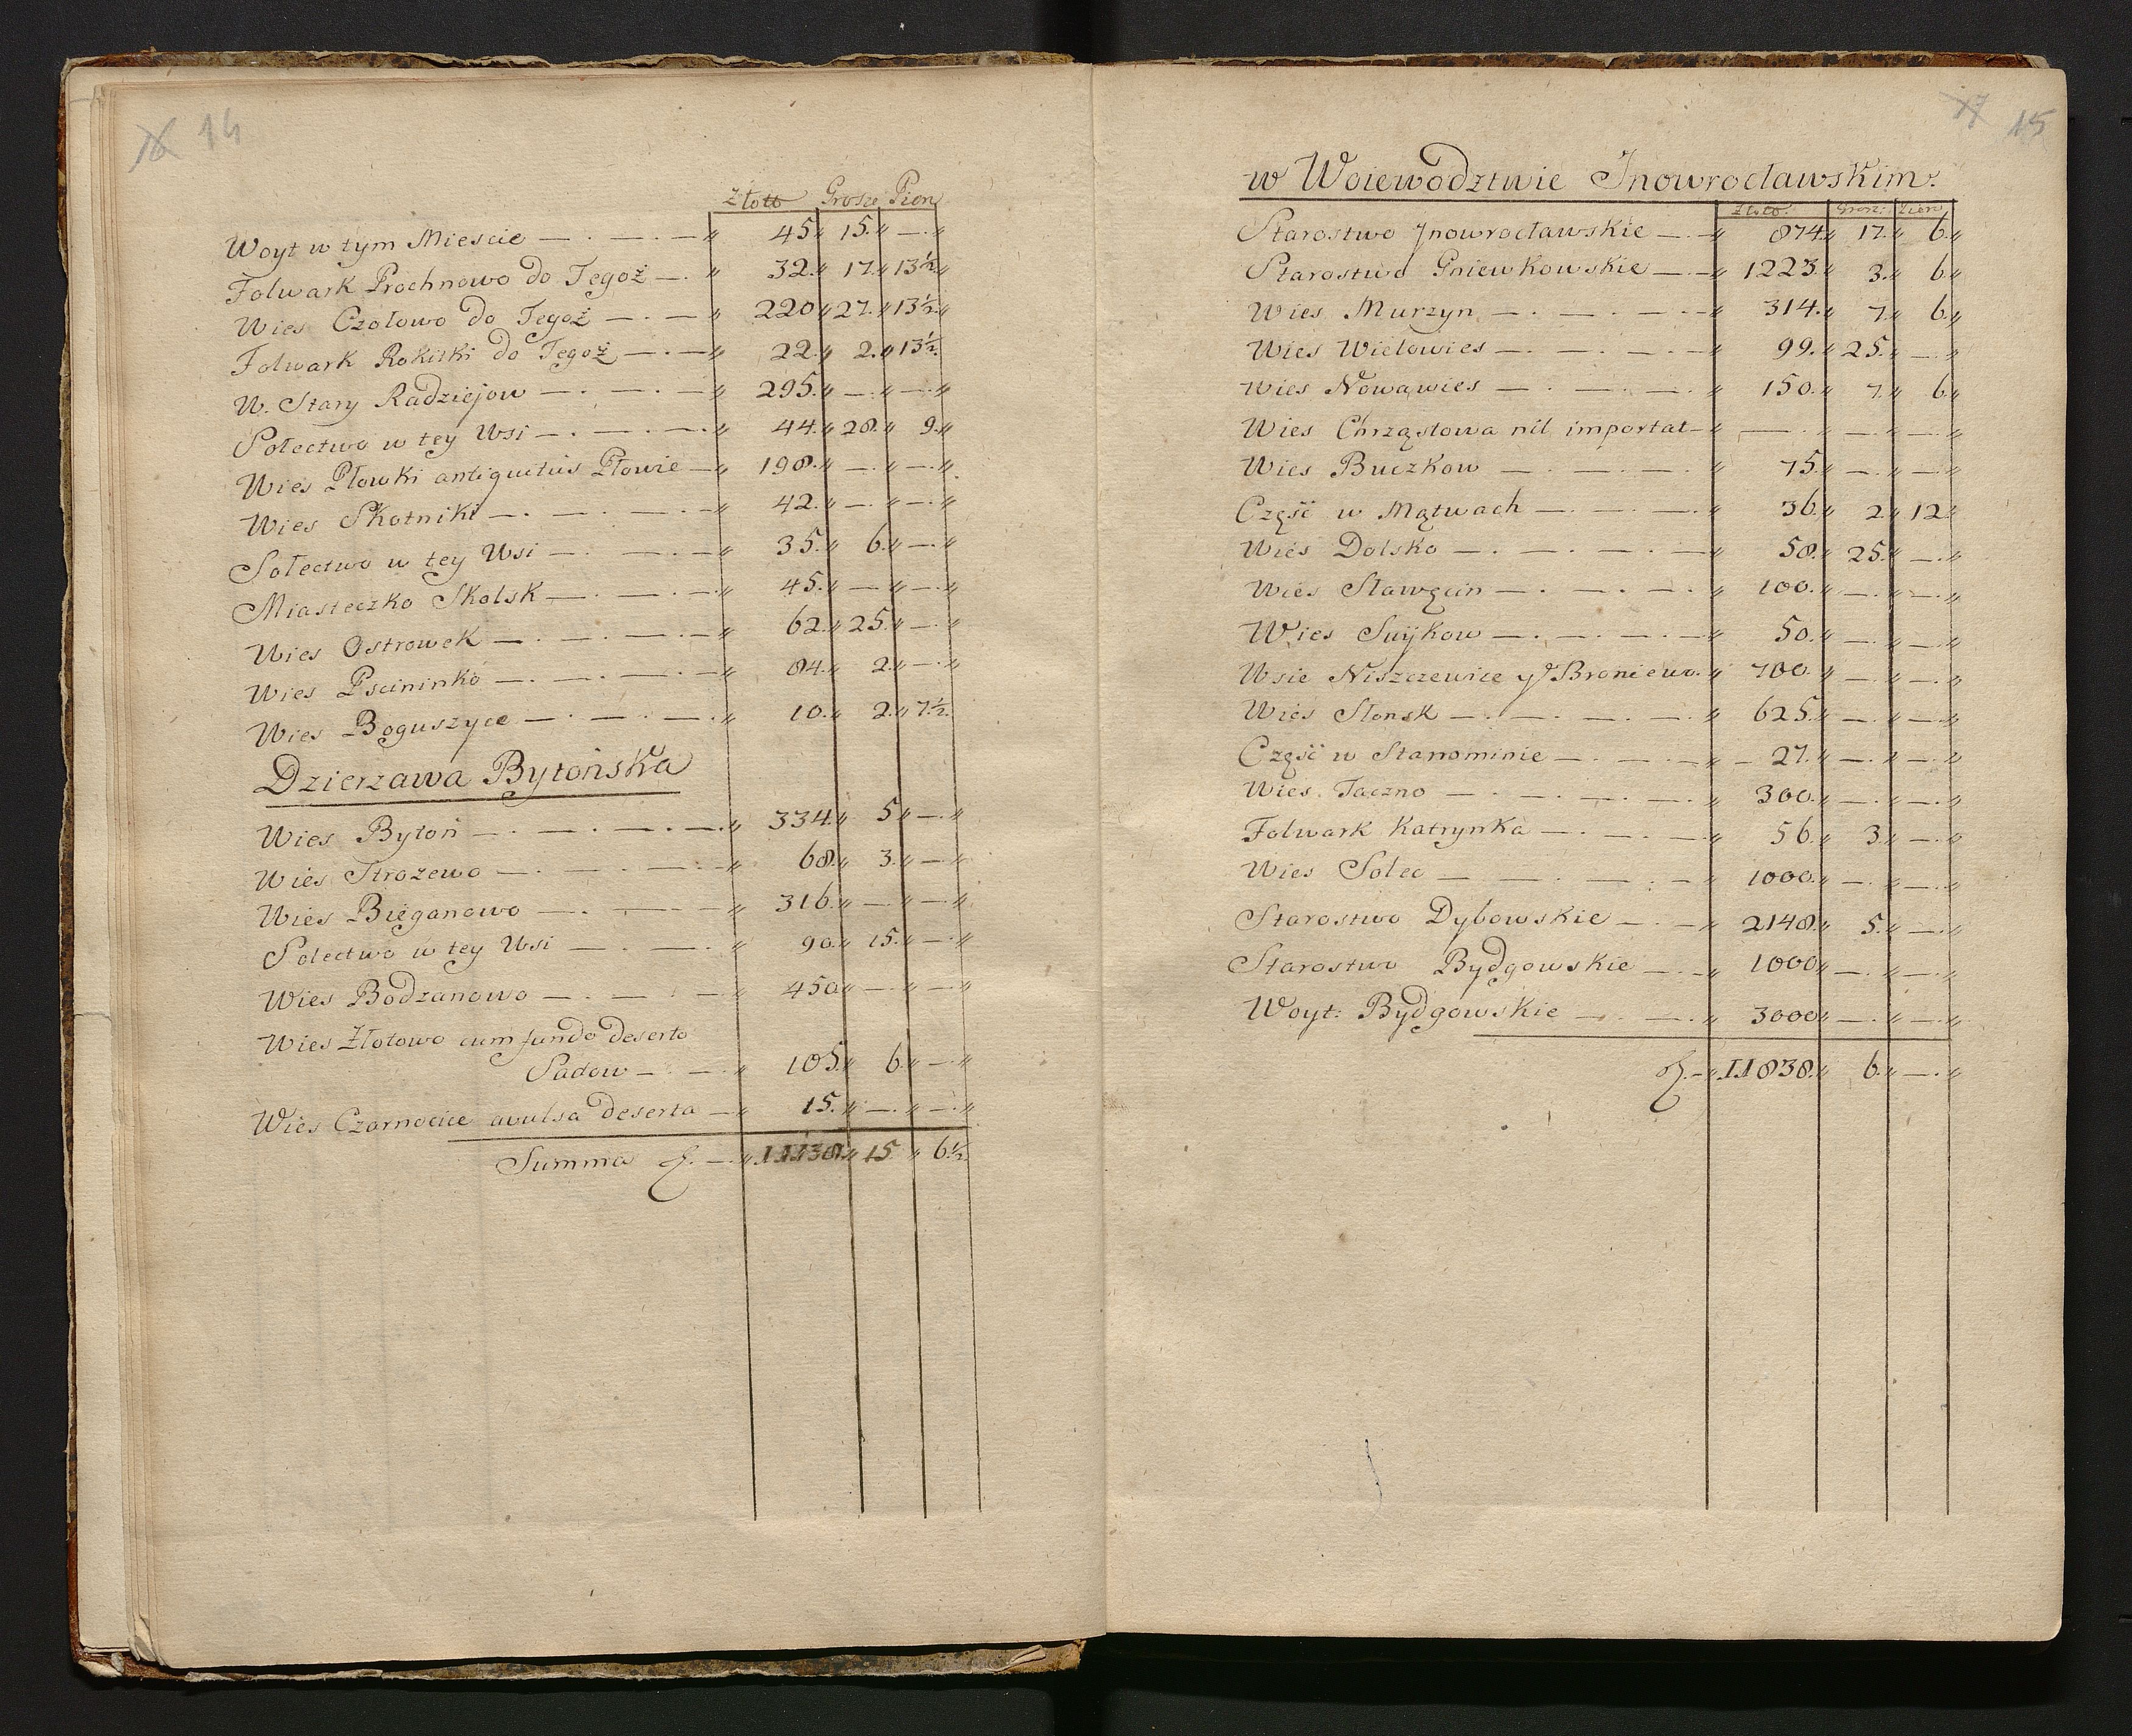 16 14
Złoto Grosze Pien
Woyt w tym Miescie — . — . — " 45 " 15. " — . "
Folwark Prochnowo do Tegoż — . " 32. " 17. " 13½ "
Wies Czołowo do Tegoż — . — " 220 " 27. " 13½ "
Folwark Rokitki do Tegoż — . — " 22. " 2. " 13½.
W. Stary Radziejow — . — . — " 295. " — . " — . "
Sołectwo w tey Wsi — . — . — . " 44. " 28. " 9. "
Wies Płowki antiquitus Płowie — " 198. " — . " — . "
Wies Skotniki — . — . — . — " 42. " — . " — . "
Sołectwo w tey Wsi — . — . — " 35. " 6. " — . "
Miasteczko Skolsk — . — . — . " 45. " — " — . "
Wies Ostrowek — . — . — . — " 62. " 25. " — . "
Wies Pscininko — . — . — . — " 84. " 2. " — . "
Wies Boguszyce — . — . — . " 10. " 2. " 7½.
Dzierzawa Bytońska
Wies Bytoń — . — . — . — . " 334. " 5 " — . "
Wies Strozewo — . — . — . — " 68. " 3. " — . "
Wies Bieganowo — . — . — " 316. " — . " — . "
Solectwo w tey Wsi — . — . " 90. " 15. " — . "
Wies Bodzanowo — . — . — " 450 " — . " — . "
Wies Złotowo cum fundo deserto
Sadow — . — . " 105. " 6. " — . "
Wies Czarnocice avulsa deserta — " 15. " — . " — . "
Summa f. — " 11138. " 15 " 6½
17 15
w Woiewodztwie Jnowrocławskim.
Złoto. Grosz: Pien
Starostwo Jnowrocławskie — . — " 874. " 17. " 6. "
Starostwo Gniewkowskie — . — " 1223. " 3. " 6. "
Wies Murzyn — . — . — . — " 314. " 7. " 6. "
Wies Wielowies — . — . — . — " 99. " 25. " — . "
Wies Nowąwies — . — . — . " 150. " 7. " 6. "
Wies Chrząstowa nil importat — " — . " — . " — . "
Wies Buczkow — . — . — . " 75. " — . " — . "
Część w Mątwach — . — . — . " 36. " 2. " 12. "
Wies Dolsko — . — . — . — " 58. " 25. " — . "
Wies Sławęcin — . — . — . " 100. " — . " — . "
Wies Suijkow — . — . — . — " 50. " — . " — . "
Wsie Niszczewice y Broniewo. " 700. " — . " — . "
Wies Słonsk — . — . — . — " 625. " — . " — . "
Część w Stanominie — . — . — " — 27. " — . " — . "
Wies Taczno — . — . — . — . " 300. " — . " — . "
Folwark Katrynka — . — . — " 56. " 3. " — . "
Wies Solec — . — . — . — " 1000. " — . " — . "
Starostwo Dybowskie — . — " 2148. " 5. " — . "
Starostwo Bydgowskie — . — " 1000 " — . " — . "
Woyt: Bydgowskie — . — . " 3000 " — . " — . "
f. — " 11838. " 6. " — . "